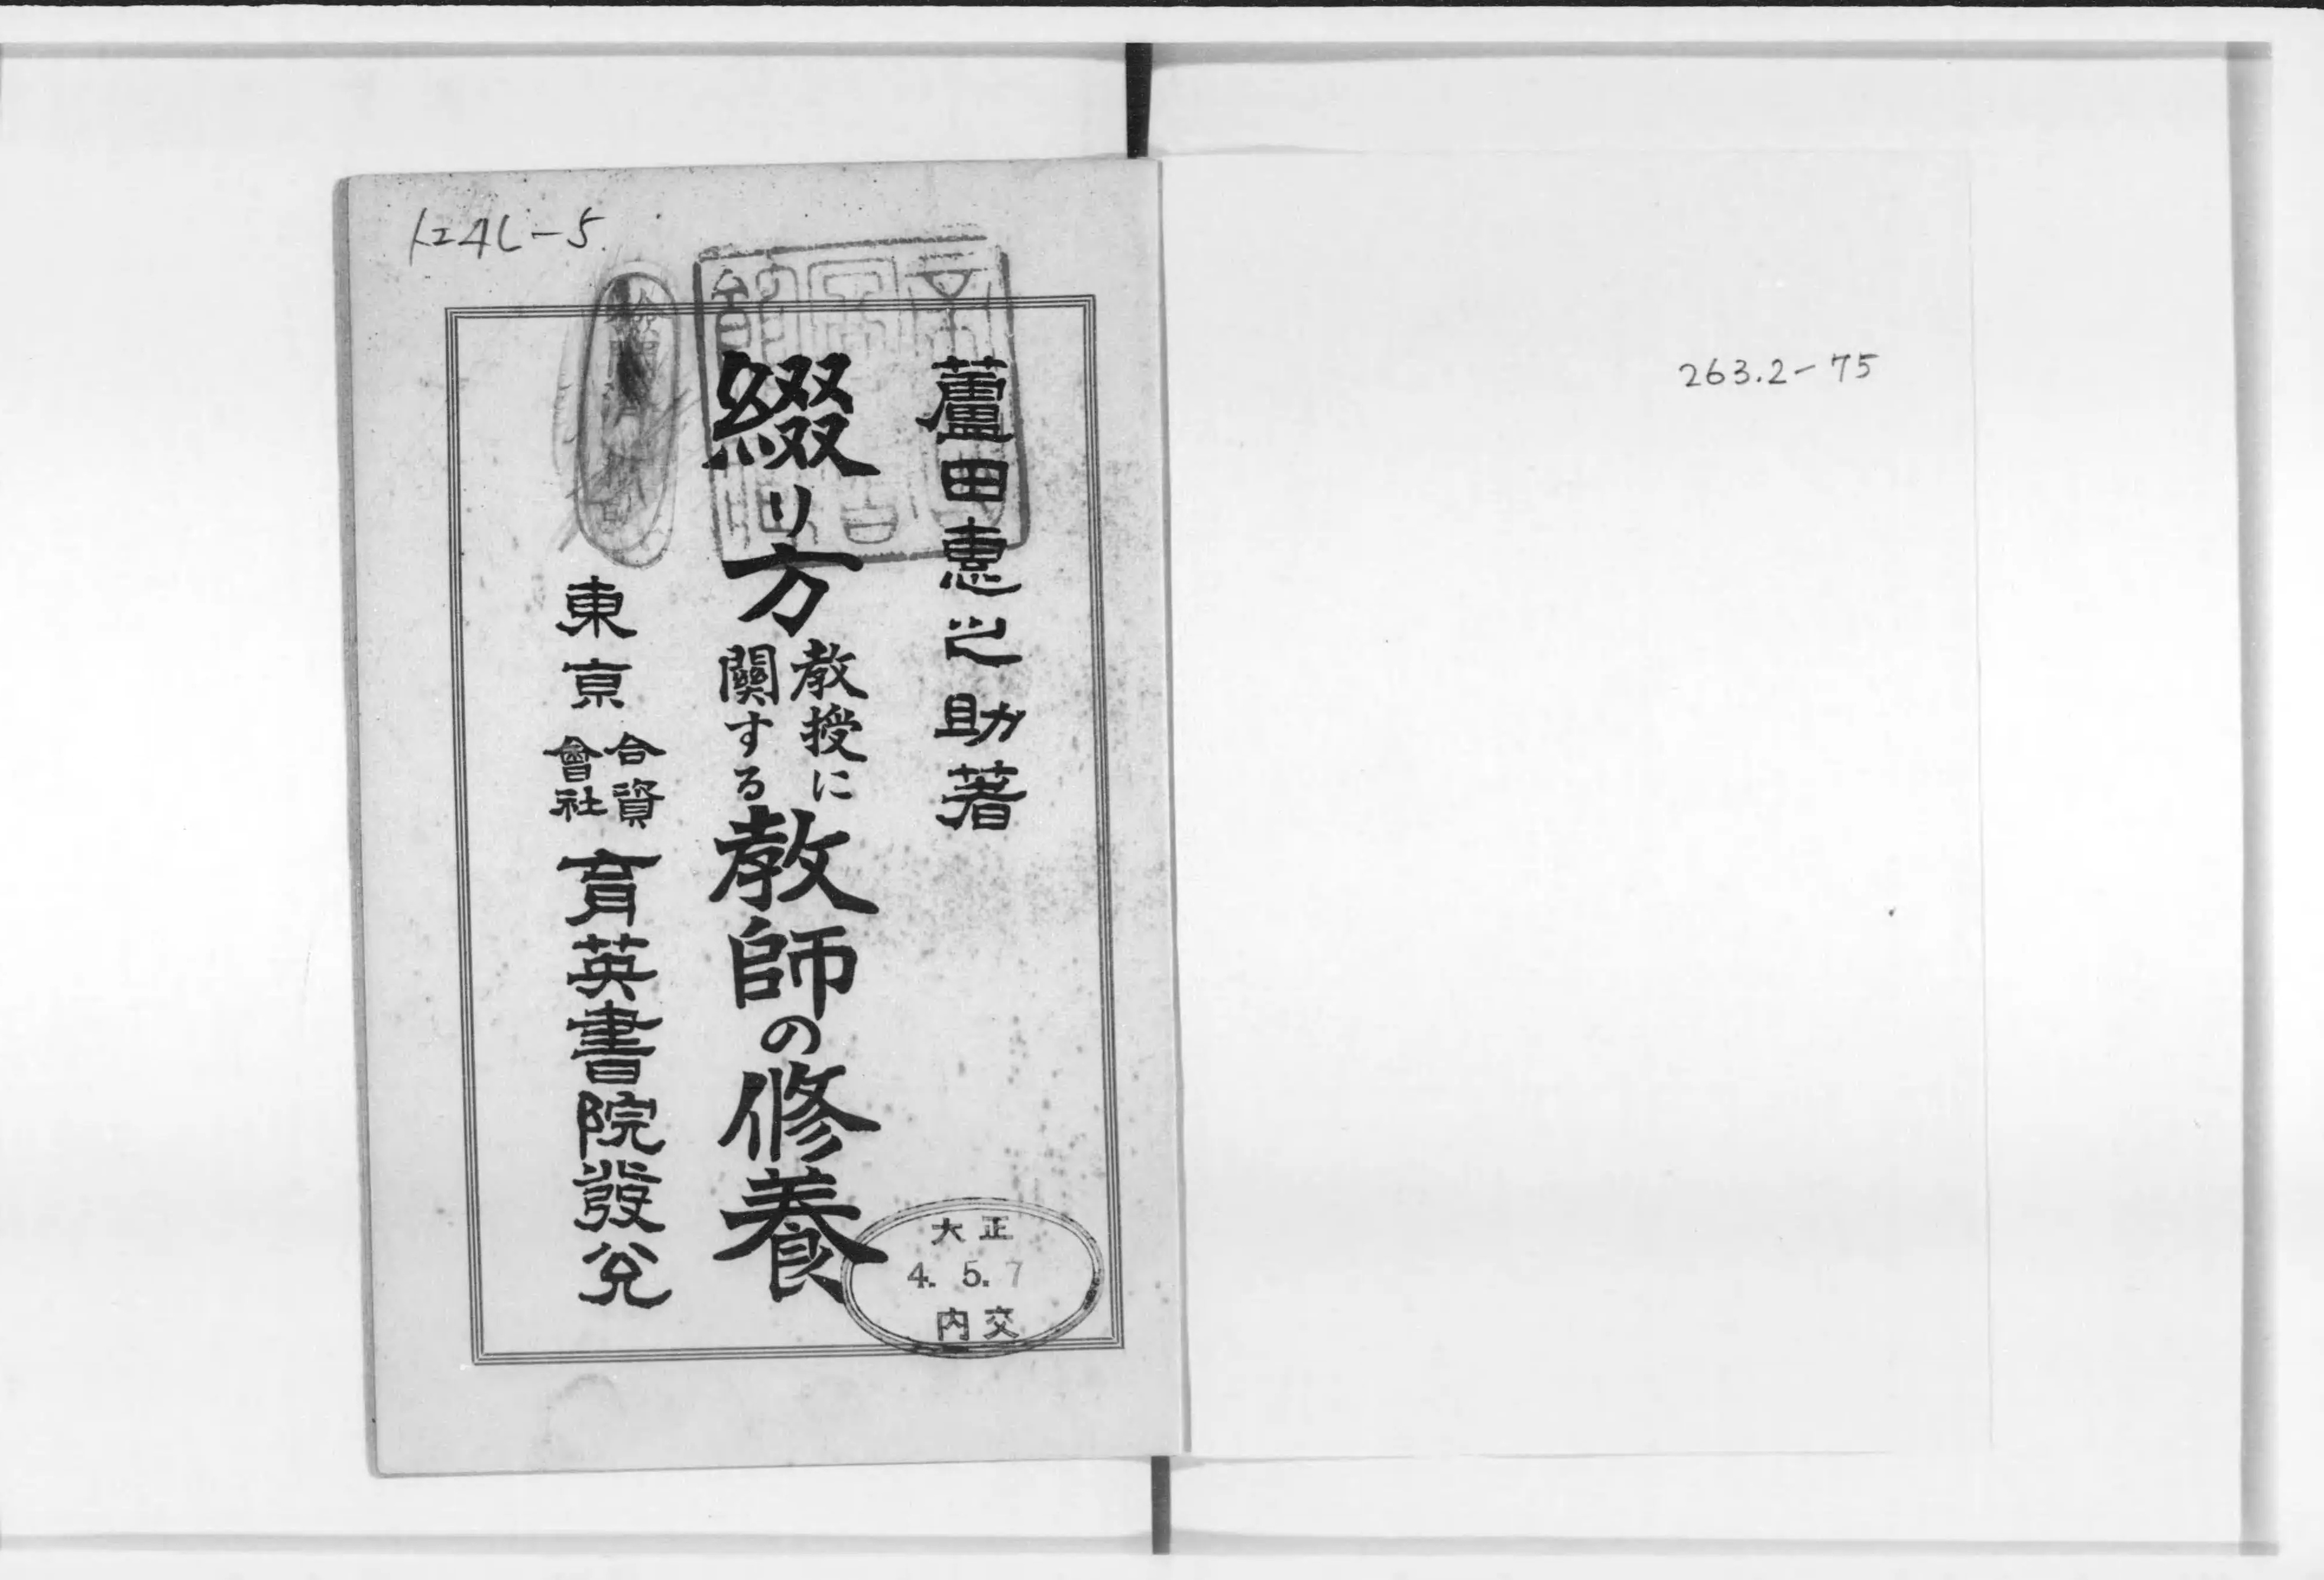 263.2-75
蘆田惠之助著
綴り方教授に關する教師の修養
東京合資會社育英書院發兌
大正
4. 5. 7
内交